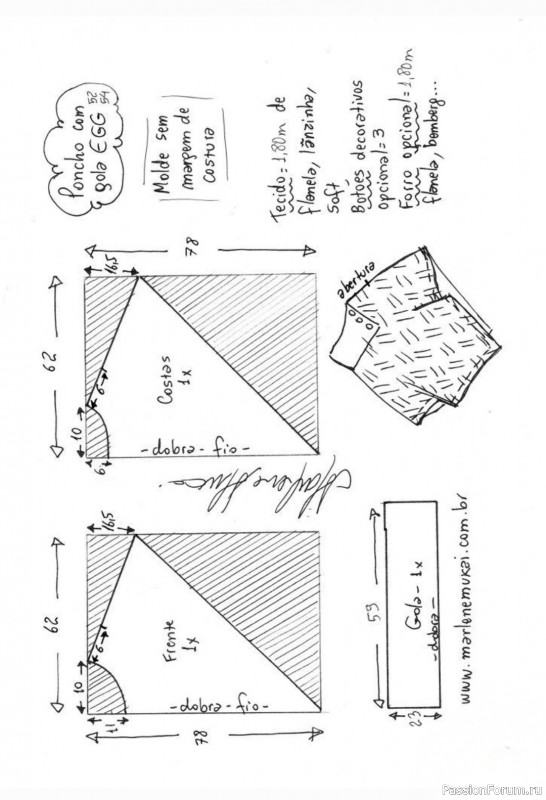 Poncho com
gola EGG 52
54
Molde sem
margem de
costura
Tecido = 1,80m de
flanela, lãnzinha,
Soft
Botões decorativos
opcional = 3
Forro opcional = 1,80m
flanela, bemberg...
62
16,5
78
10
6
6
Costas
1x
-dobra-fio-
abertura
62
16,5
78
10
11
6
Frente
1x
-dobra-fio-
53
23
Gola - 1x
-dobra-
www.marlenemukai.com.br
PassionForum.ru